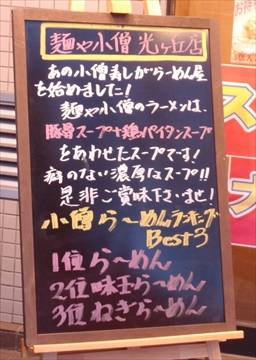 麺や小僧 光ヶ丘店
あの小僧寿しがらーめん屋
を始めました!
麺や小僧のラーメンは、
豚骨スープ+鶏パイタンスープ
をあわせたスープです!
癖のない濃厚なスープ!!
是非ご賞味下さいませ!
小僧らーめんランキング
Best3
1位らーめん
2位味玉らーめん
3位ねぎらーめん
ス